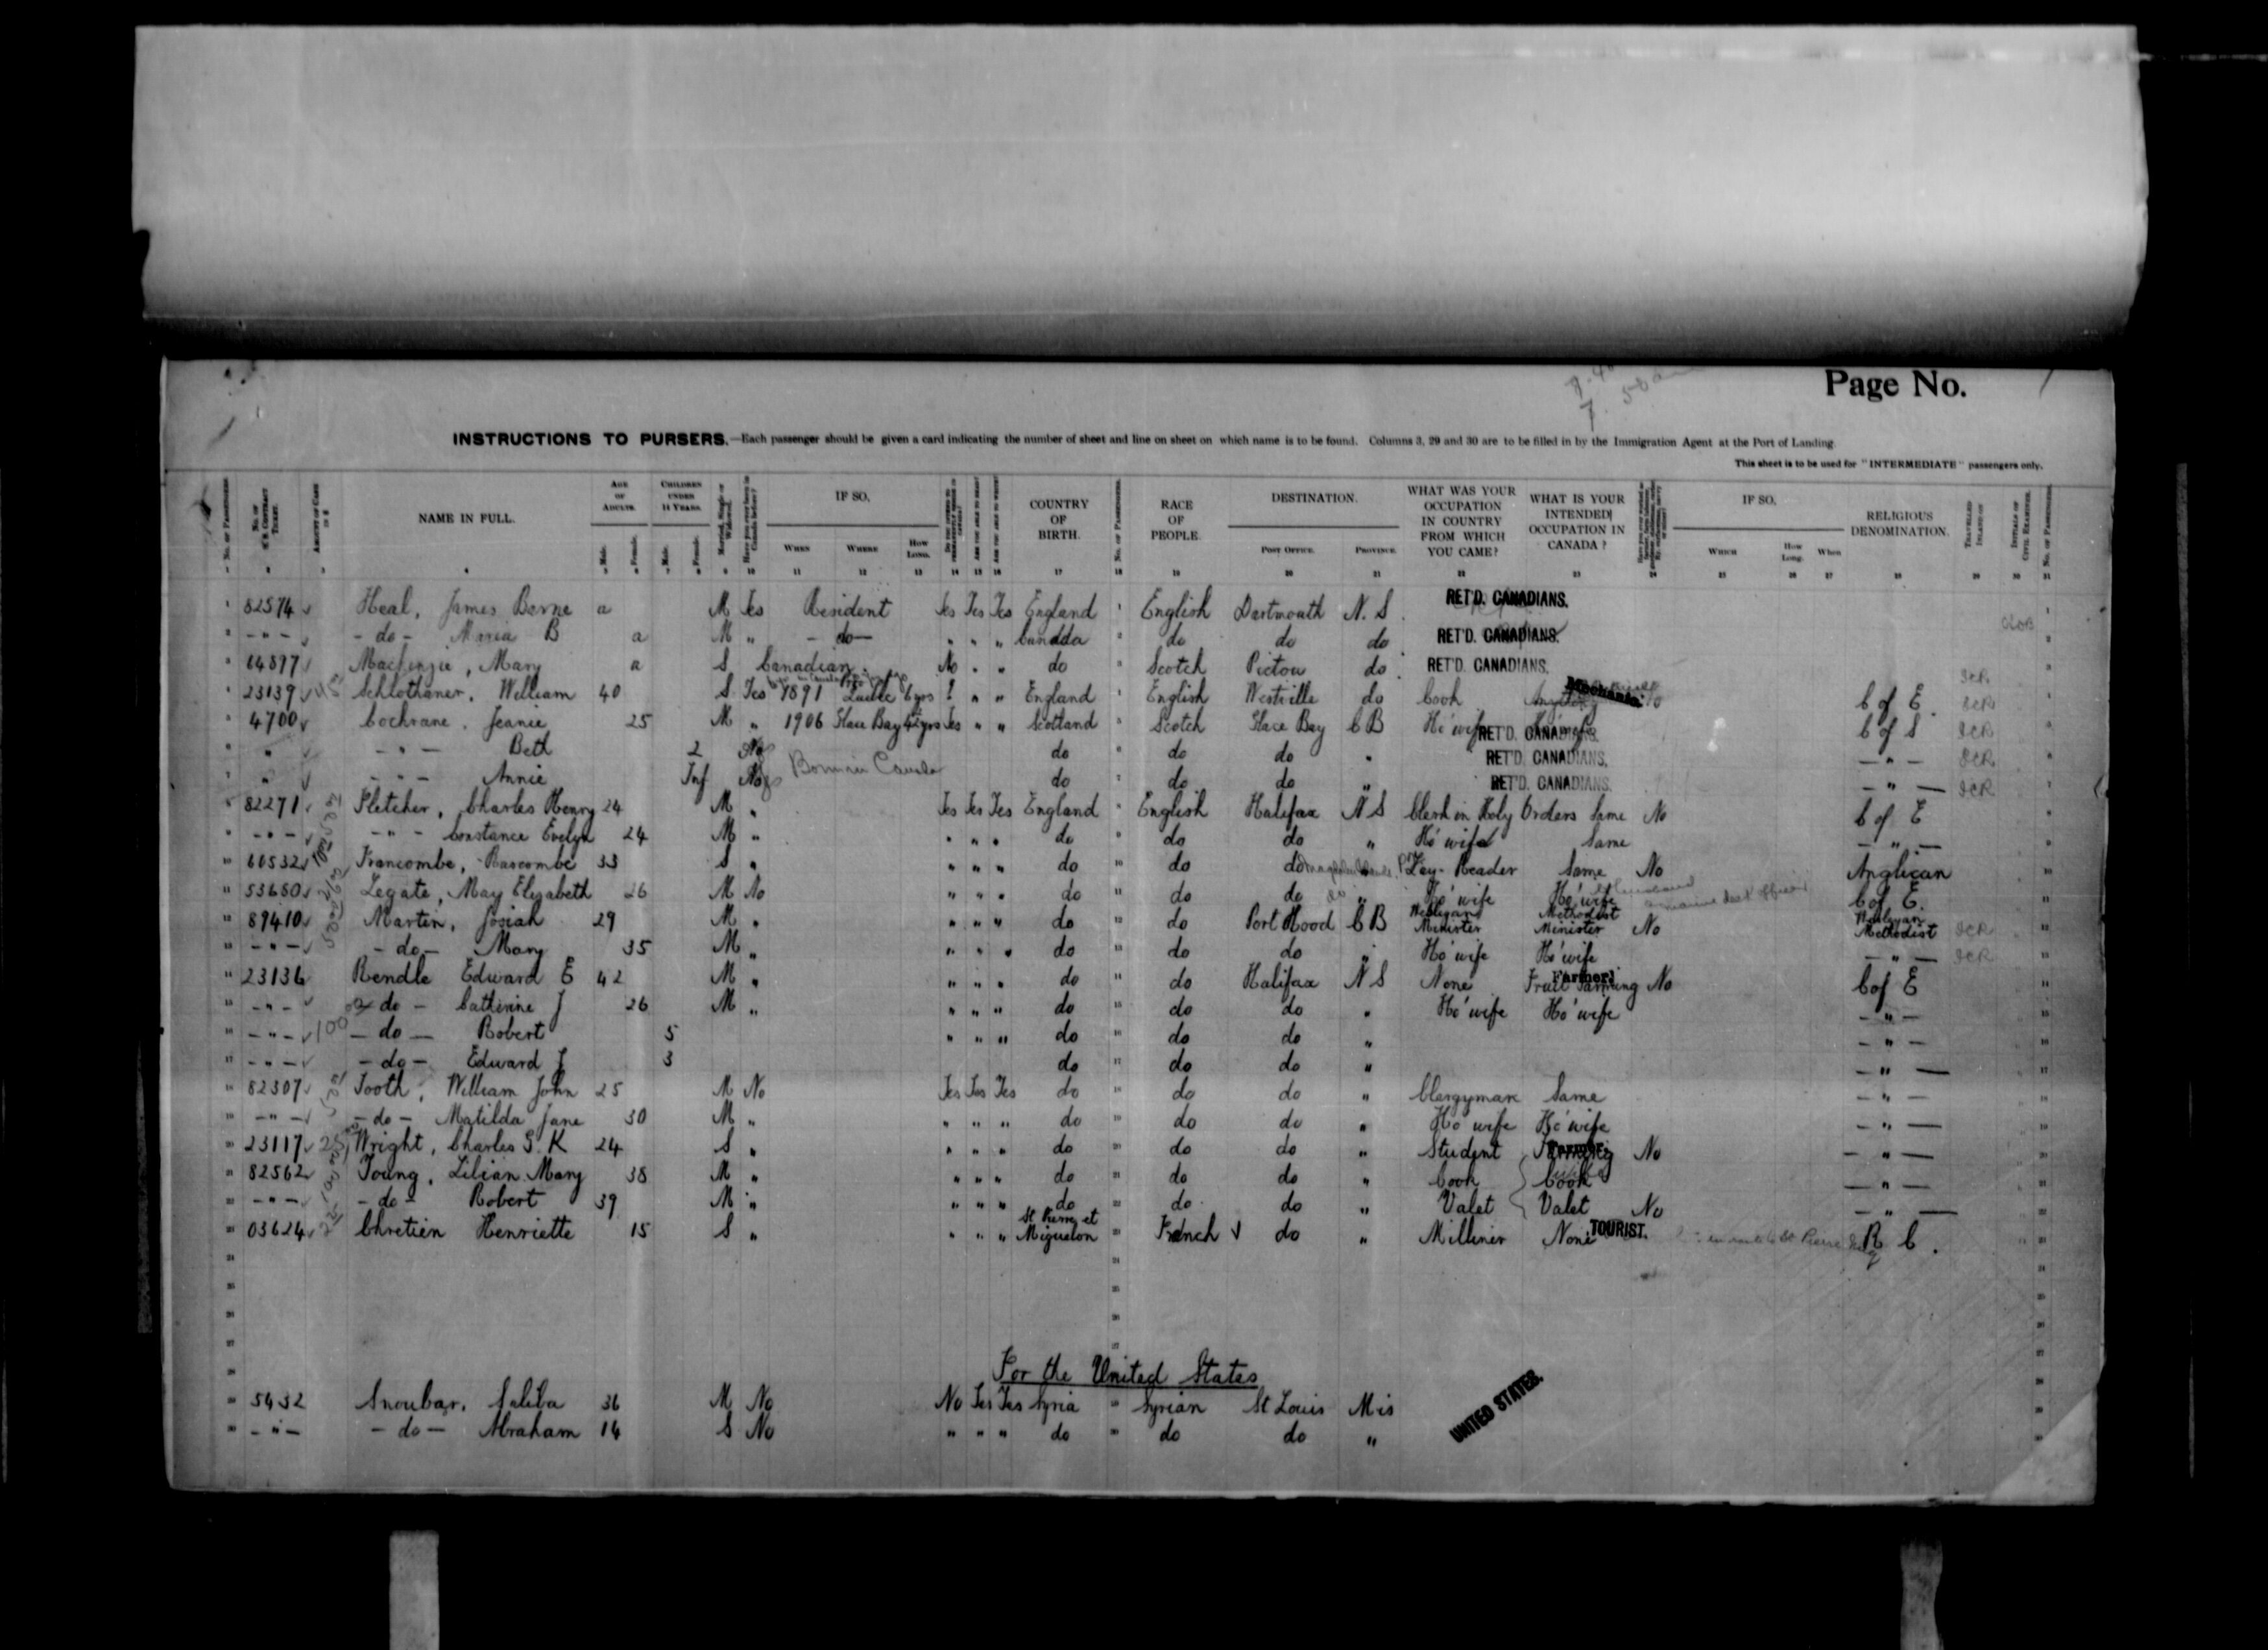 Page No.
INSTRUCTIONS TO PURSERS.—Each passenger should be given a card indicating the number of sheet and line on sheet on which name is to be found. Columns 3, 29 and 30 are to be filled in by the Immigration Agent at the Port of Landing.
This sheet is to be used for "INTERMEDIATE" passengers only.
No. of Passengers. No. of Contract Ticket. Amount of Cash in $ NAME IN FULL. Age of Adults. Male. Female. Children under 14 Years. Male. Female. Married, Single or Widowed. IF SO, When Where How Long. COUNTRY OF BIRTH. No. of Passengers. RACE OF PEOPLE. DESTINATION. Post Office. Province. WHAT WAS YOUR OCCUPATION IN COUNTRY FROM WHICH YOU CAME? WHAT IS YOUR INTENDED OCCUPATION IN CANADA? IF SO, Which How Long. When RELIGIOUS DENOMINATION. Travelled Inland on Initials of Civil Examiner. No. of Passengers.
1 82574 Heal, James a M Yes Resident Yes Yes Yes England 1 English Dartmouth N.S. RET'D. CANADIANS. 1
2 - " - - do - Maria B a M " - do - " " " Canada 2 do do do RET'D. CANADIANS. 2
3 Mackenzie, Mary a S Canadian No " " do 3 Scotch Pictou do RET'D. CANADIANS. 3
4 23139 William 40 S Yes 1891 6 yrs " " England English Westville do Cook Mechanic. C of E
5 4700 Cochrane, Jeanie 25 M " 1906 Glace Bay Yes " " Scotland Scotch Glace Bay C B Ho'wife RET'D. CANADIANS. C of S
6 " - " - Beth 2 do do do " RET'D. CANADIANS. - " -
7 " - " - Annie Inf Born in Canada do 7 do do " RET'D. CANADIANS. - " -
8 82271 Fletcher, Charles Henry 24 M " Yes Yes Yes England English Halifax N S Clerk in Holy Orders Same No C of E
9 - " - - " - Constance Evelyn 24 M " " " " do do do " Ho'wife Same - " -
10 60532 Francombe, 33 S " " " " do 10 do do Lay-Reader Same No Anglican
11 53680 Legate, May Elizabeth 26 M No " " " do 11 do do " Ho'wife Ho'wife C of E.
12 89410 Martin, Josiah 29 M " " " " do 12 do Port Hood C B Wesleyan Minister Methodist Minister No Wesleyan Methodist
13 - " - - do - Mary 35 M " " " " do 13 do do " Ho'wife Ho'wife - " -
14 23136 Rendle Edward E 42 M " " " " do 14 do Halifax N S None Fruit Farming Farmer No C of E
15 - " - do - Catherine J 26 M " " " " do 15 do do " Ho'wife Ho'wife - " -
16 - " - 100 - do - Robert 5 " " " do 16 do do " - " -
17 - " - - do - Edward J 3 do 17 do do " - " -
18 82307 Tooth, William John 25 M No Yes Yes Yes do 18 do do " Clergyman Same - " -
19 - " - - do - Matilda Jane 30 M " " " " do 19 do do " Ho'wife Ho'wife - " -
20 23117 Wright, Charles G. K 24 S " " " " do 20 do do " Student No - " -
21 82562 Young, Lilian Mary 38 M " " " " do 21 do do " Cook Cook - " -
22 - " - - do - Robert 39 M " " " " do 22 do do " Valet Valet No - " -
23 03624 Chretien Henriette 15 S " " " " St Pierre et Miquelon 23 French do " Milliner None TOURIST. R C.
24
25
26
27
28 For the United States
29 5432 Snoubar, Saliba 36 M No No Yes Yes Syria Syrian St Louis Mis UNITED STATES.
30 - " - - do - Abraham 14 S No " " " do do do "